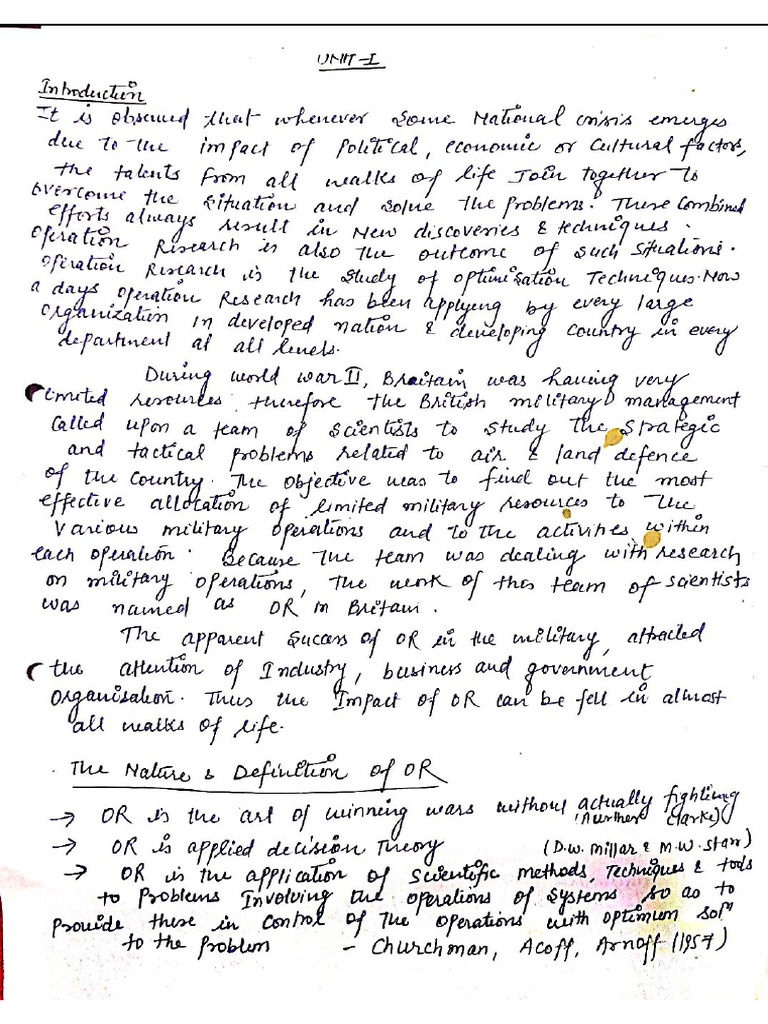 UNIT-I
Introduction
It is observed that whenever some National crisis emerges
due to the impact of political, economic or cultural factors,
the talents from all walks of life Join together to
overcome the situation and solve the problems. These combined
efforts always result in New discoveries & techniques.
Operation Research is also the outcome of such situations.
Operation Research is the study of optimisation Techniques. Now
a days Operation Research has been applyeng by every large
Organization in developed nation & developing country in every
department at all levels.
During world war II, Braitain was having very
limited resources, therefore the British military management
called upon a team of scientists to study the strategic
and tactical problems related to air & land defence
of the country. The objective was to find out the most
effective allocation of limited military resources to the
various military operations and to the activities within
each operation. Because the team was dealing with research
on military operations, the work of this team of scientists
was named as OR in Britain.
The apparent success of OR in the military, attracted
the attention of Industry, business and government
Organisation. Thus the Impact of OR can be fell in almost
all walks of life.
The Nature & Definition of OR
→ OR is the art of winning wars without actually fighting
(Aurther Clarke)
→ OR is applied decision Theory (D.W. Millar & M.W. Starr)
→ OR is the application of scientific methods, Techniques & tools
to problems Involving the operations of systems so as to
provide these in control of the operations with optimum solⁿ
to the problem - Churchman, Acoff, Arnoff (1957)